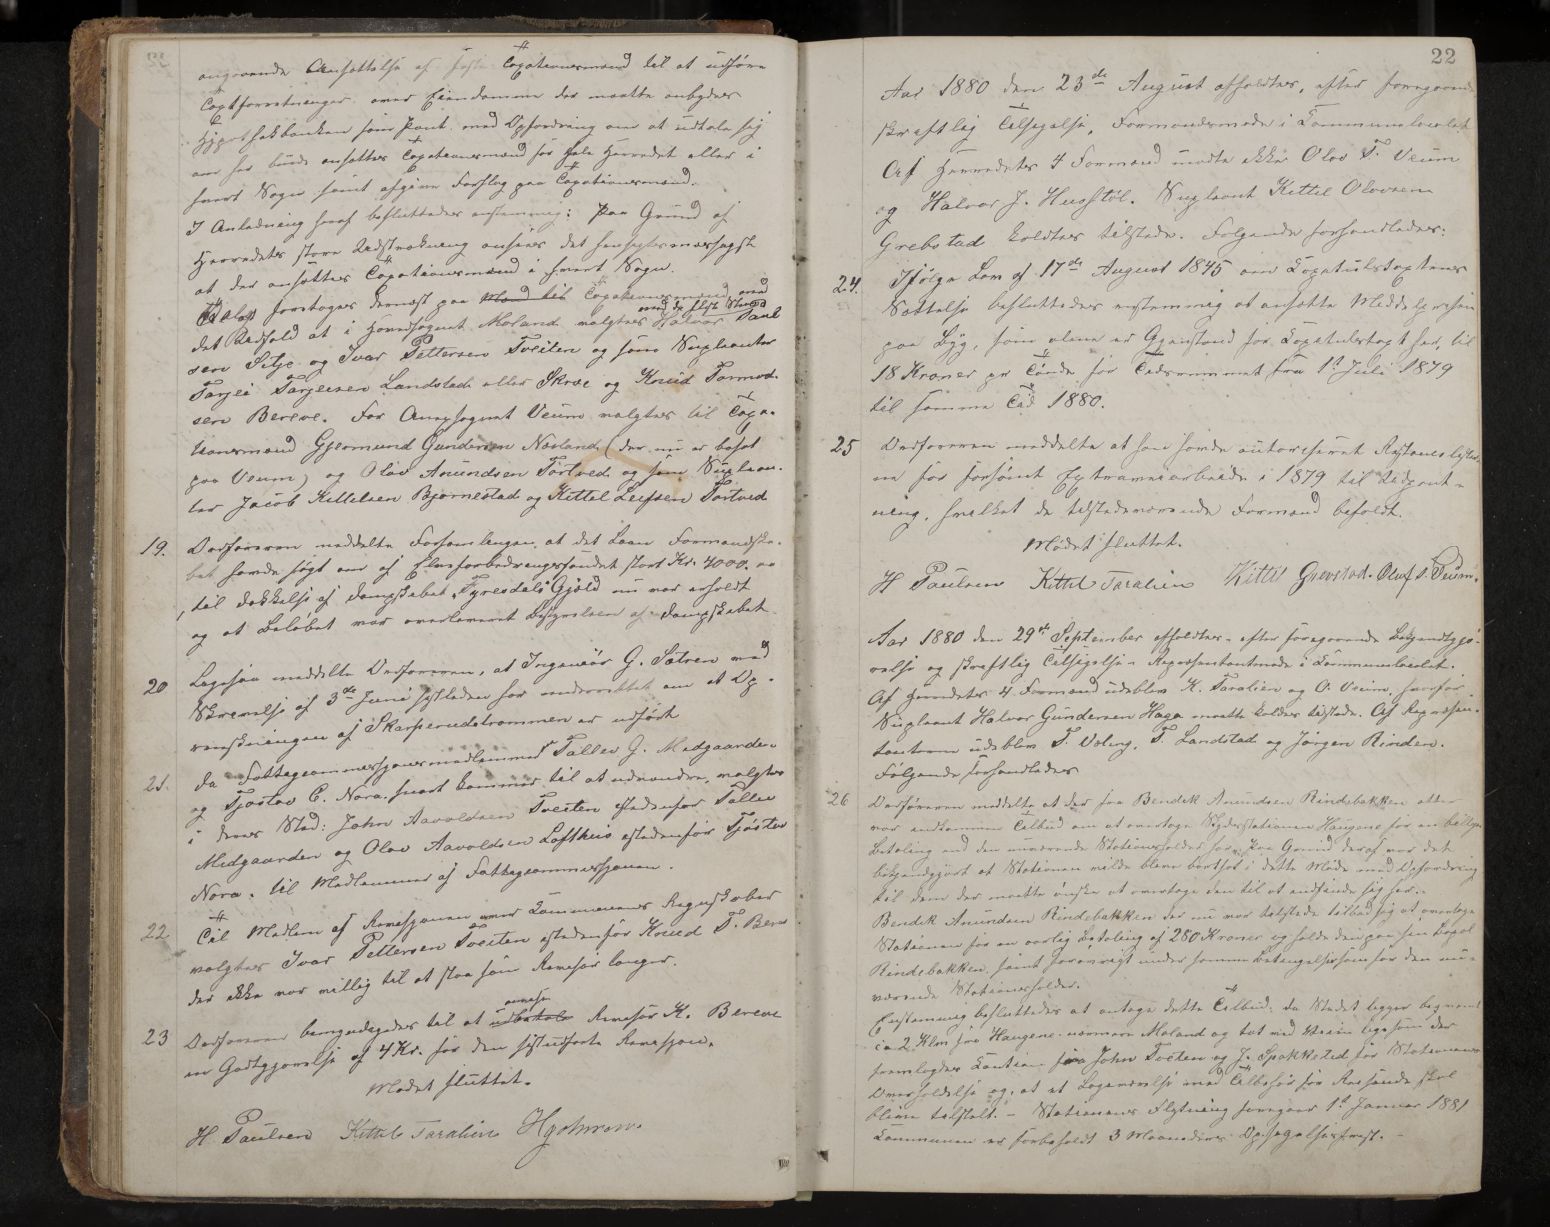 angaaende Ansættelse af faste Taxationsmænd til at udføre
Taxtforretninger over Eiendomme der maatte anbydes
Hypothekbanken som Pant, med Opfordring om at udtale sig
om her burde ansættes Taxationsmænd for hele Herredet eller i
hvert Sogn samt afgive Forslag paa Taxationsmænd.
I Anledning heraf besluttedes enstemmig: Paa Grund af
Herredets store Udstrækning ansees det hensigtsmæssigst
at der ansættes Taxationsmænd i hvert Sogn.
Valg foretoges dernæst paa Mænd til Taxationsmænd med
det Udfald at i Hovedsognet Moland valgtes Halvor Paul-
sen Silje og Ivar Pettersen Tveiten og som Supleanter
Targei Targeisen Landstad eller Skræe og Knud Tormod-
sen Bereve. For Annexsognet Veum valgtes til Taxa-
tionsmænd Gjermund Gundersen Nesland (der nu er bosat
paa Veum) og Olav Anundsen Tortved og som Suplean-
ter Jacob Kittelsen Bjørnestad og Kittel Leifsen Tortved
19. Ordføreren meddelte Forsamlingen, at det Laan Formandska-
bet havde søgt om af Elveforbedringsfondet stort Kr. 4000.00
til Dækkelse af Dampskabet "Fyresdals" Gjæld nu var erholdt
og at Beløbet var overleveret Bestyrelsen af Dampskabet.
20 Ligesaa meddelte Ordføreren, at Ingeniør G. Sætren med
Skrivelse af 3de Juni sidstleden har underrettet om at Op-
renskningen af Skarperudstrømmen er udført
21. Da Fattigcommissionsmedlemmer Tallev G. Midgaarden
og Tjøstov E. Nora snart kommer til at udvandre, valgtes
i deres Sted: John Aavoldsen Tveiten istedenfor Tallev
Midgaarden og Olav Aavoldsen Lofthus istedenfor Tjøstov
Nora, til Medlemmer af Fattigcommissionen.
22 Til Medlem af Revisionen over Kommunens Regnskaber
valgtes Ivar Pettersen Tveiten istedenfor Knud T. Bereve
der ikke var villig til at staa som Revisor længer.
23 Ordføreren bemyndigedes til at udbetale Revisor K. Bereve
en Godtgjørelse af 4 Kr. for den sidst udførte Revision.
Mødet sluttet.
H. Paulsen Kittel Taralien
22
Aar 1880 den 23de August afholdtes, efter foregaaende
skriftlig Tilsigelse, Formandsmøde i Kommunelocalet
Af Herredets 4 Formænd mødte ikke Olav T. Veum
og Halvor J. Husstøl. Supleant Kittel Olavsen
Grebstad holdtes tilstede. Følgende forhandledes:
24. Ifølge Lov af 17de August 1845 om Kapitelstaxtens
Sættelse besluttedes enstemmig at ansætte Middelprisen
paa Byg, som alene er Gjenstand for Kapitelstaxt her, til
18 Kroner pr Tønde for Tidsrummet fra 1st Juli 1879
til samme Tid 1880.
25 Ordføreren meddelte at han havde autoriseret Restancelister-
ne for forsømt Extraveiarbeide i 1879 til Udpant-
ning, hvilket de tilstedeværende Formænd befoldt.
Mødet sluttet.
H Paulsen Kittel Taralien Kittil Grevstad. Oluf T. Veum.
Aar 1880 den 29de September afholdtes - efter foregaaende Bekjendtgjø-
relse og skriftlig Tilsigelse - Repræsentantmøde i Kommunelocalet.
Af Herredets 4 Formænd udeblev K. Taralien og O. Veum, hvorfor
Supleant Halvor Gundersen Haga maatte holdes tilstede. Af Repræsen-
tanterne udeblev T. Landstad og Jørgen Rinden.
Følgende forhandledes
26 Ordføreren meddelte at der fra Bendik Anundsen Rindebakken atter
var indkommen Tilbud om at overtage Skydsstationen Haugene for en billigere
Betaling end den nuværende Stationsholder har. Paa Grund deraf var det
bekjendtgjort at Stationen vilde blive bortsat i dette Møde med Opfordring
til dem der maatte ønske at overtage den til at indfinde sig her.
Bendik Anundsen Rindebakken der nu var tilstede tilbød sig at overtage
Stationen for en aarlig Betaling af 280 Kroner og holde den paa sin Bopæl
Rindebakken, samt forøvrigt under samme Betingelser som for den nu-
værende Stationsholder.
Enstemmig besluttedes at antage dette Tilbud, da Stedet ligger beqvemt
ca 2 Klm fra Haugene nærmere Moland og tæt ved Veien ligesom der
fremlagdes Caution fra John Tveiten og J. Spokksted for Stationens
Overholdelse og, at et Logeværelse med Tilbehør for Reisende skal
blive tilstelt. - Stationens Flytning foregaar 1st Januar 1881
Kommunen er forbeholdt 3 Maaneders Opsigelsesfrist. -